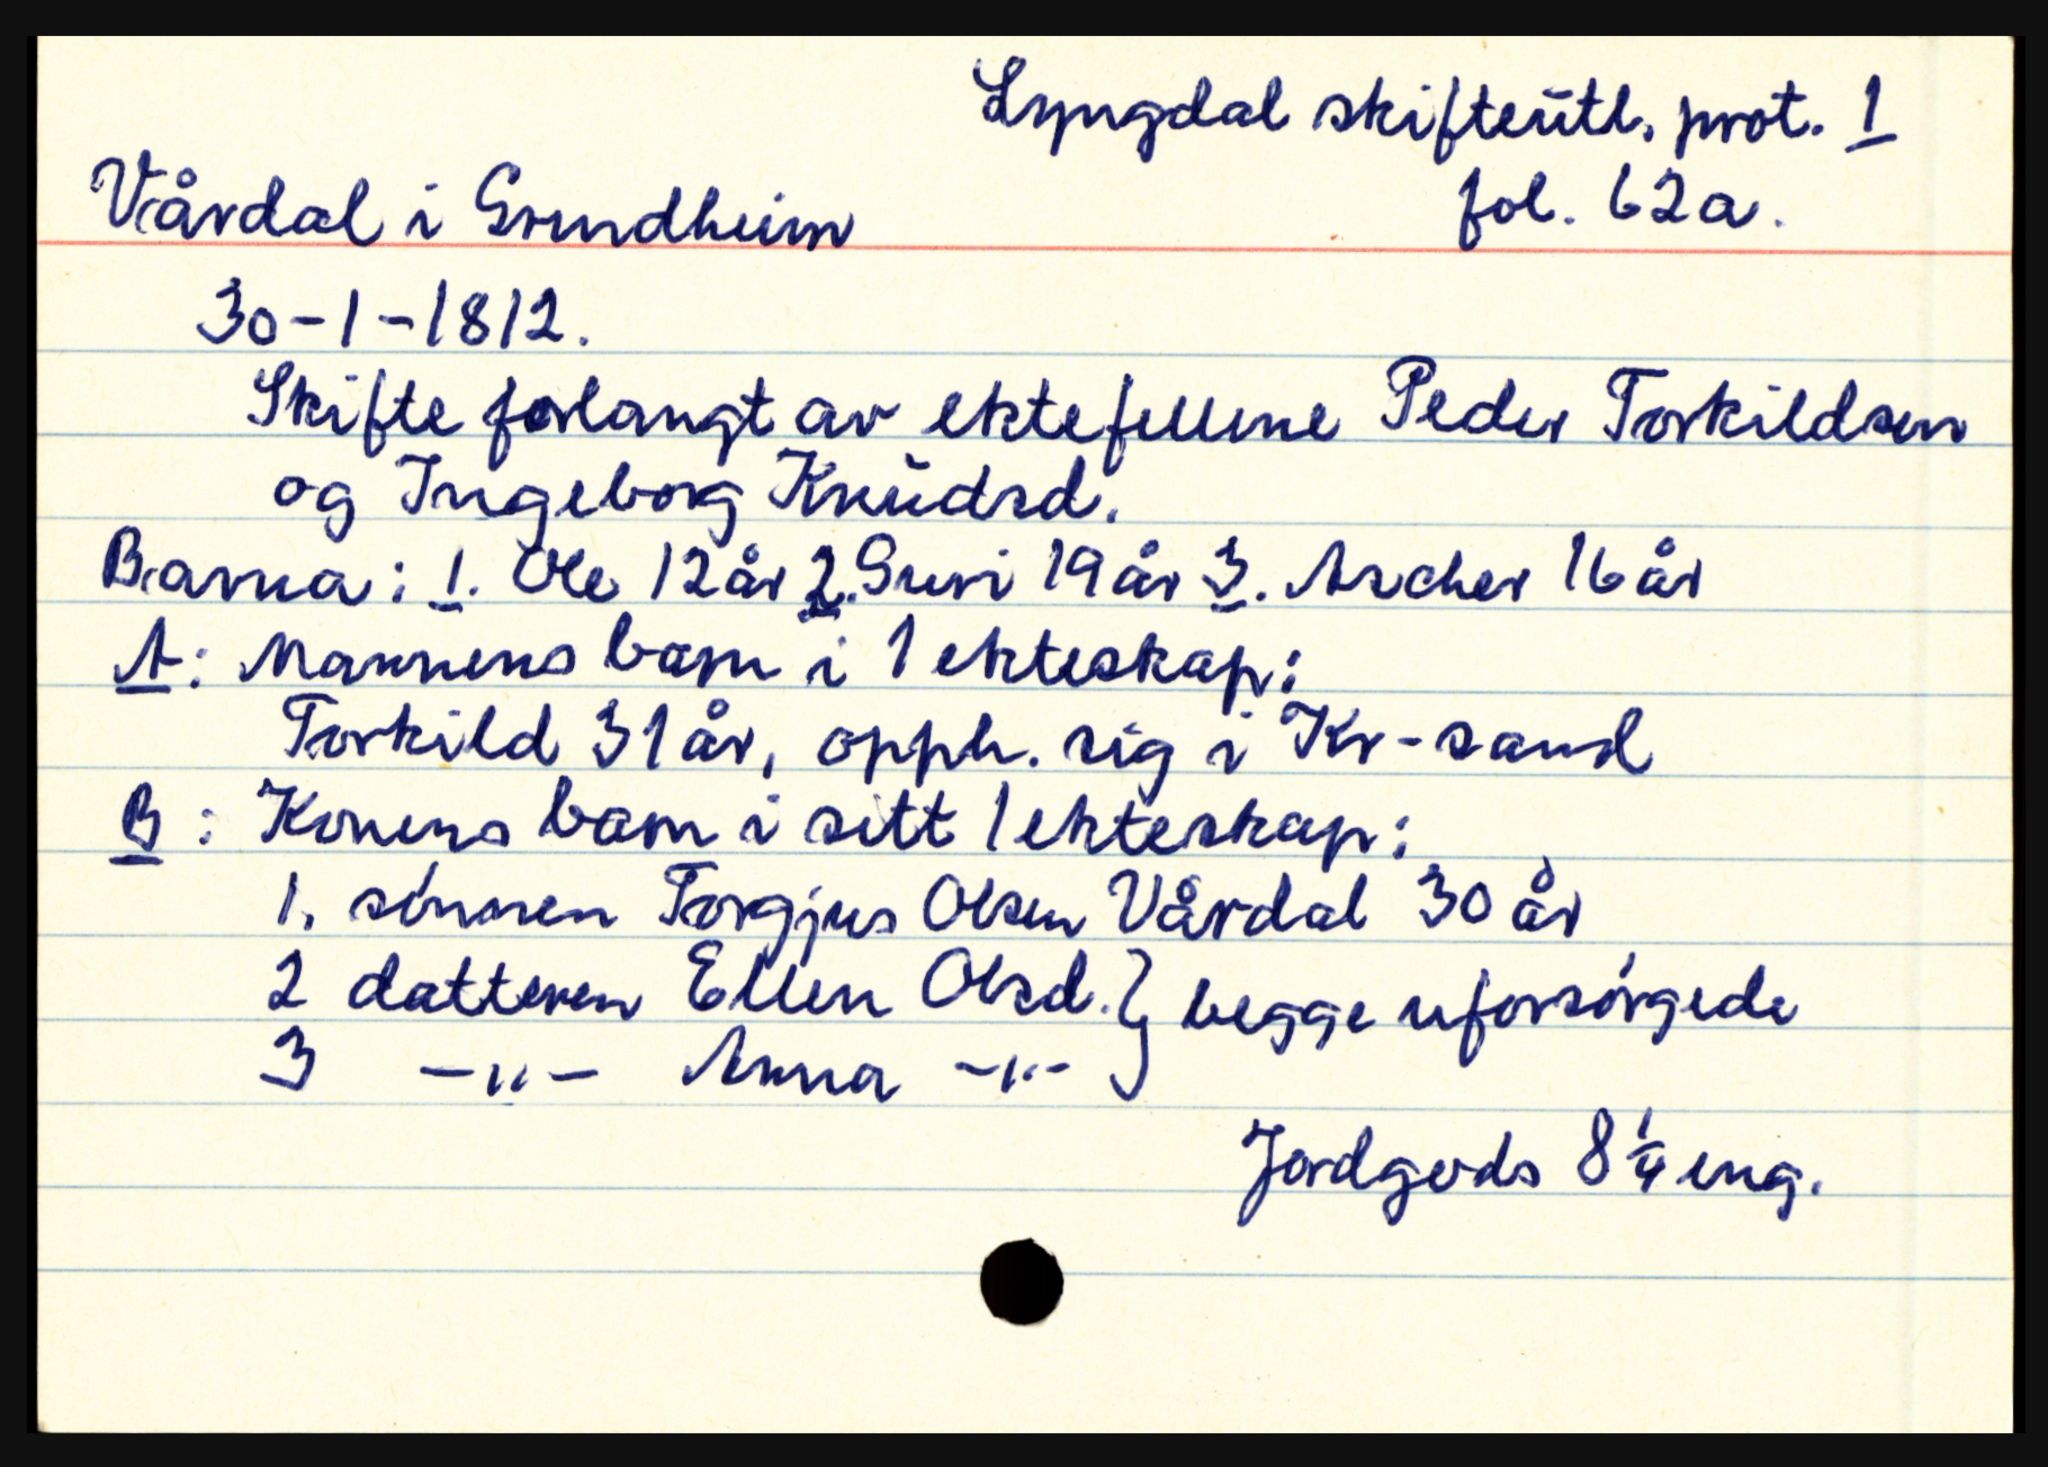 Lyngdal skifteutl. prot. 1
fol. 62a.
Vårdal i Grindheim
30-1-1812.
Skifte forlangt av ektefellene Peder Torkildsen
og Ingeborg Knudsd.
Barna: 1. Ole 12 år 2. Guri 19 år 3. Ascher 16 år
A: Mannens barn i 1 ekteskap:
Torkild 31 år, opph. sig i Kr-sand
B: Konens barn i sitt 1 ekteskap:
1. sønnen Torgjus Olsen Vårdal 30 år
2 datteren Ellen Olsd. } begge uforsørgede
3 -"- Anna -"-
Jordgods 8 1/4 eng.